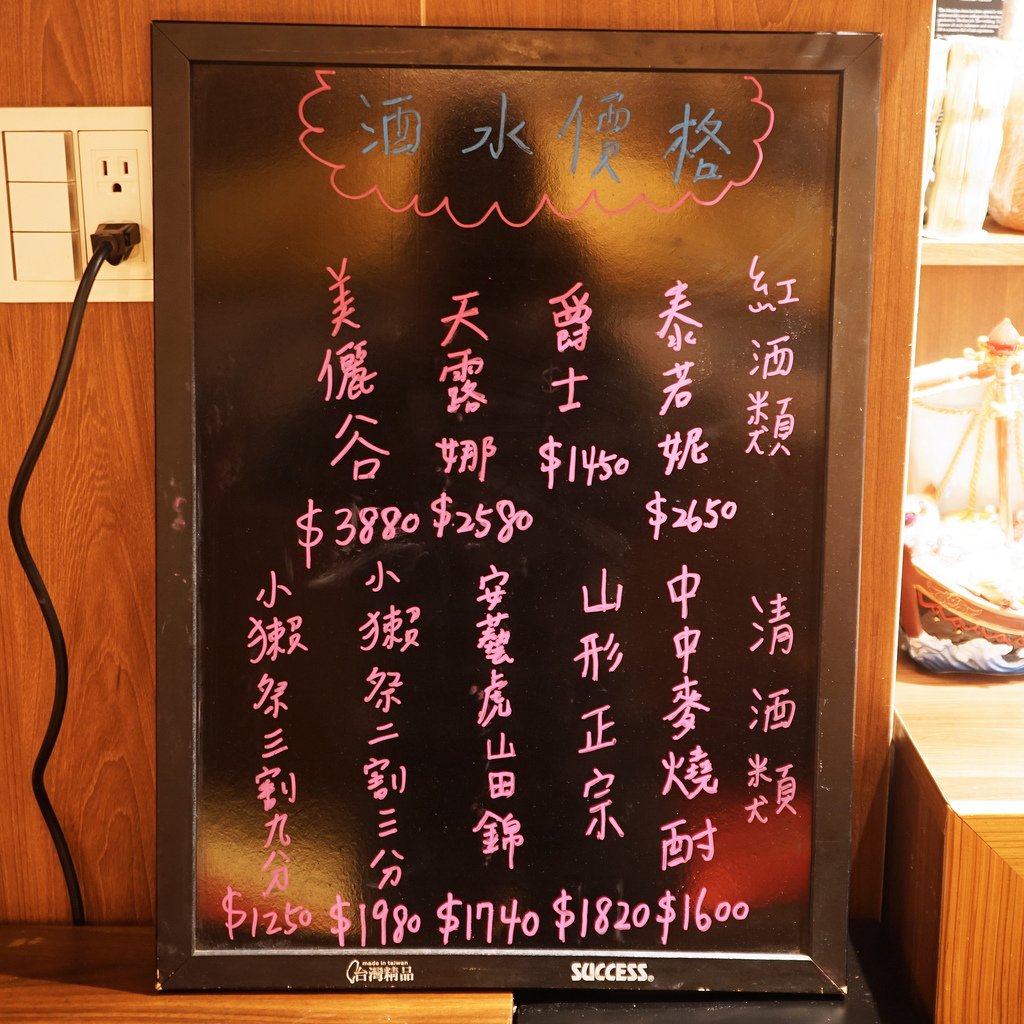 酒水價格
紅酒類
泰若妮
$2650
爵士
$1450
天露娜
$2580
美儷谷
$3880
清酒類
中中麥燒酎
$1600
山形正宗
$1820
安藝虎山田錦
$1740
小獺祭二割三分
$1980
小獺祭三割九分
$1250
made in taiwan
台灣精品
SUCCESS®